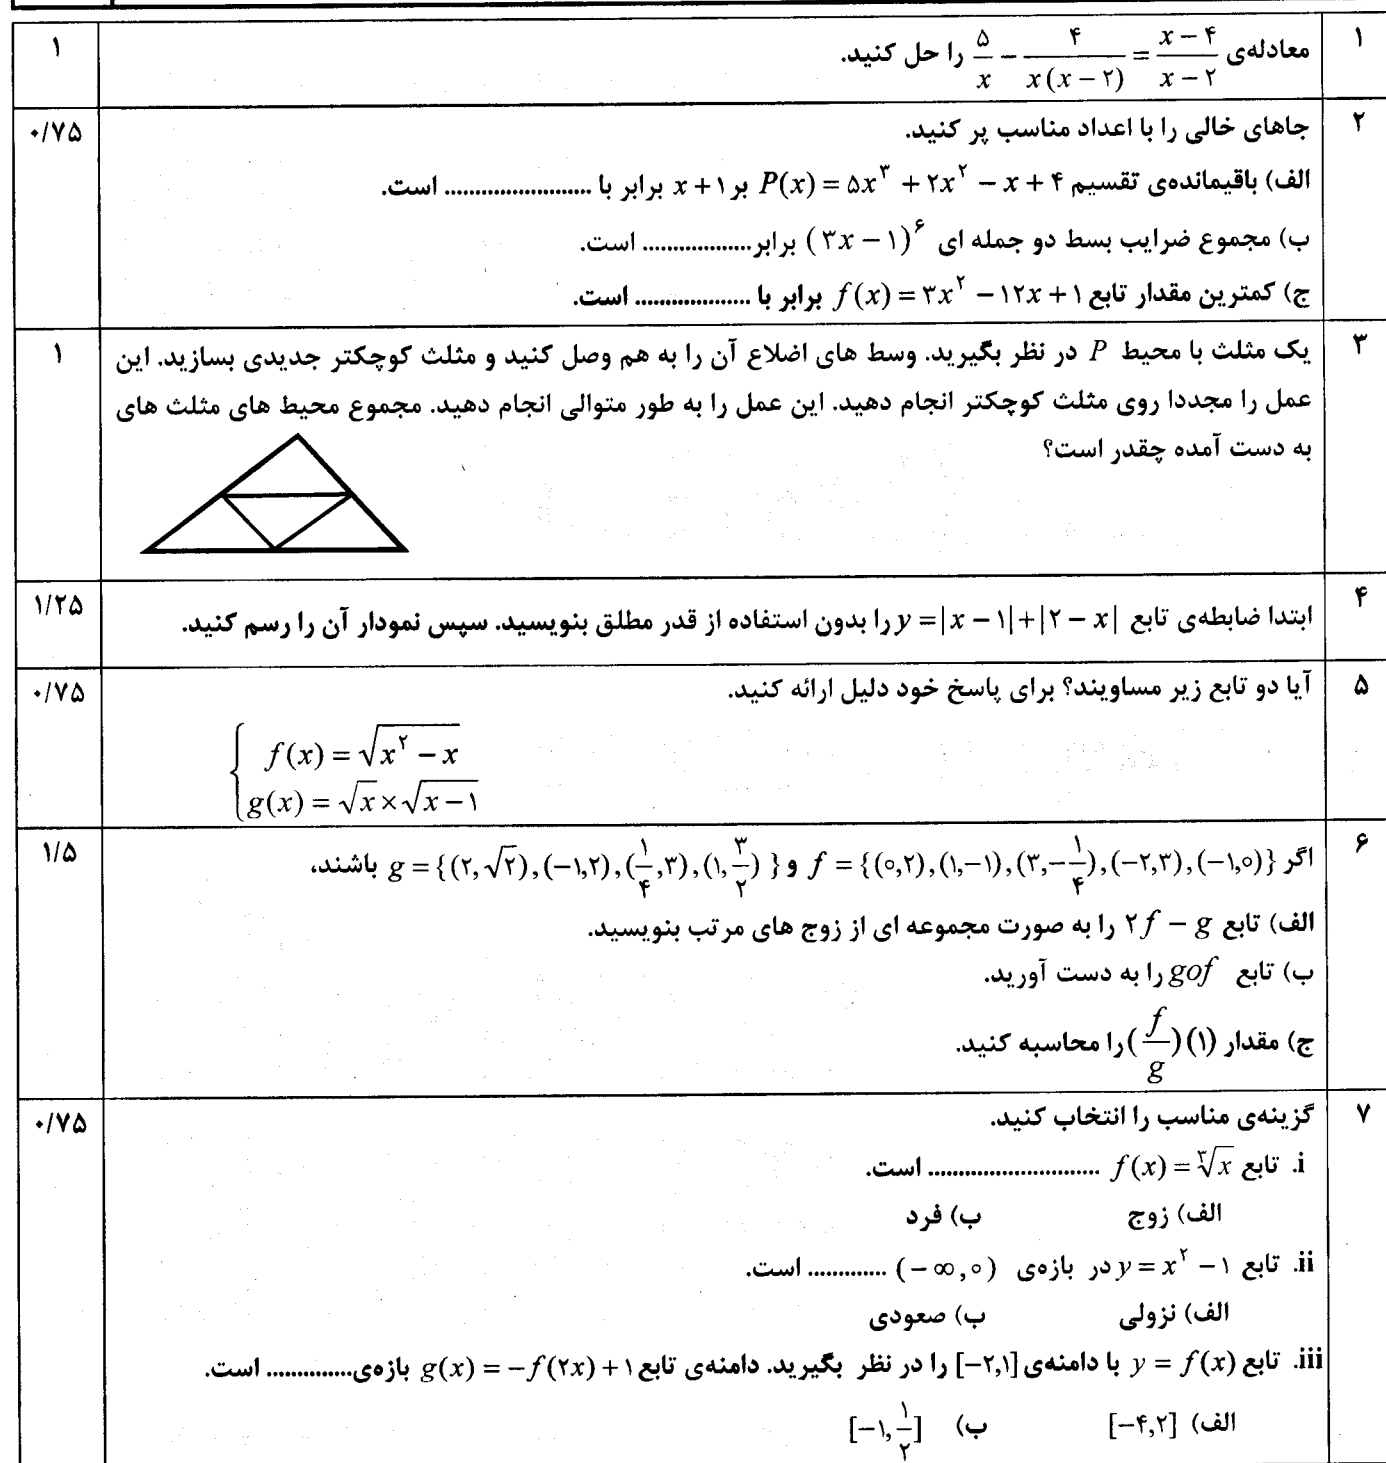 ۱ معادله‌ی ۵/x − ۴/x(x−۲) = x−۴/x−۲ را حل کنید. ۱
۲ جاهای خالی را با اعداد مناسب پر کنید. ۰/۷۵
الف) باقیمانده‌ی تقسیم P(x) = ۵x³ + ۲x² − x + ۴ بر x+۱ برابر با ........................ است.
ب) مجموع ضرایب بسط دو جمله ای (۳x − ۱)^۶ برابر.................. است.
ج) کمترین مقدار تابع f(x) = ۳x² − ۱۲x + ۱ برابر با ................... است.
۳ یک مثلث با محیط P در نظر بگیرید. وسط های اضلاع آن را به هم وصل کنید و مثلث کوچکتر جدیدی بسازید. این ۱
عمل را مجددا روی مثلث کوچکتر انجام دهید. این عمل را به طور متوالی انجام دهید. مجموع محیط های مثلث های
به دست آمده چقدر است؟
۴ ابتدا ضابطه‌ی تابع y = |x − ۱| + |۲ − x| را بدون استفاده از قدر مطلق بنویسید. سپس نمودار آن را رسم کنید. ۱/۲۵
۵ آیا دو تابع زیر مساویند؟ برای پاسخ خود دلیل ارائه کنید. ۰/۷۵
f(x) = √(x² − x)
g(x) = √x × √(x − ۱)
۶ اگر f = {(۰,۲),(۱,−۱),(۳,−۱/۴),(−۲,۳),(−۱,۰)} و g = {(۲,√۲),(−۱,۲),(۱/۴,۳),(۱,۳/۲)} باشند، ۱/۵
الف) تابع ۲f − g را به صورت مجموعه ای از زوج های مرتب بنویسید.
ب) تابع gof را به دست آورید.
ج) مقدار (f/g)(۱) را محاسبه کنید.
۷ گزینه‌ی مناسب را انتخاب کنید. ۰/۷۵
i. تابع f(x) = ∛x ............................ است.
الف) زوج ب) فرد
ii. تابع y = x² − ۱ در بازه‌ی (−∞,۰) ............. است.
الف) نزولی ب) صعودی
iii. تابع y = f(x) با دامنه‌ی [−۲,۱] را در نظر بگیرید. دامنه‌ی تابع g(x) = −f(۲x) + ۱ بازه‌ی.............. است.
الف) [−۴,۲] ب) [−۱,۱/۲]